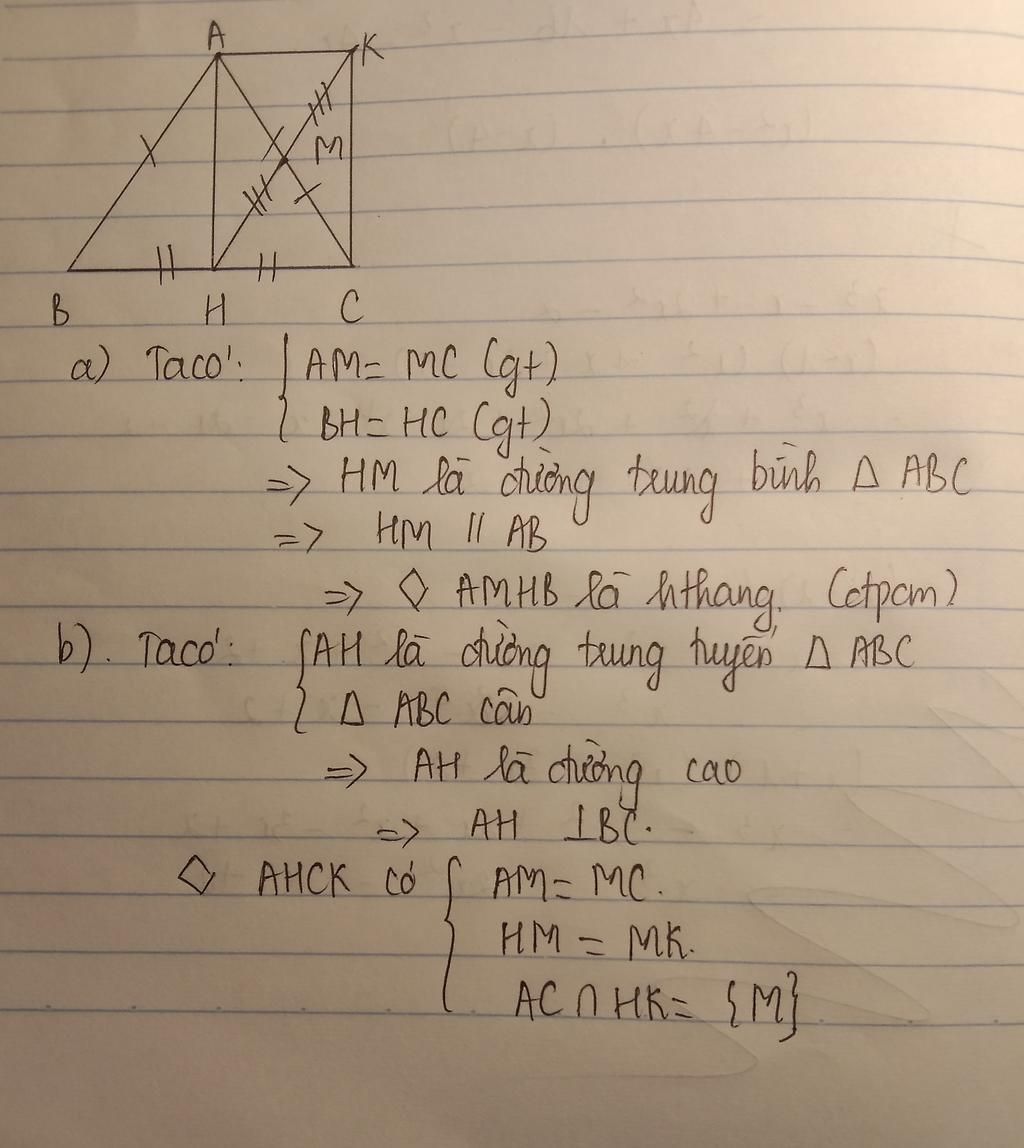 A
K
M
B H C
a) Ta có: { AM = MC (gt)
BH = HC (gt)
=> HM là đường trung bình Δ ABC
=> HM // AB
=> ◇ AMHB là hthang. (đpcm)
b). Ta có: { AH là đường trung tuyến Δ ABC
Δ ABC cân
=> AH là đường cao
=> AH ⊥ BC.
◇ AHCK có { AM = MC.
HM = MK.
AC ∩ HK = {M}